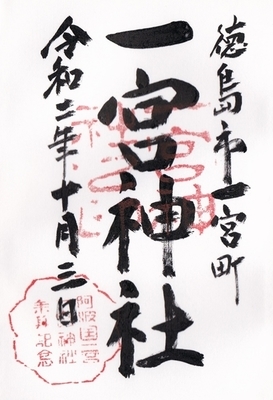 徳島市一宮町
一宮神社
令和二年十月三日
阿波国一宮
神社
参拝記念